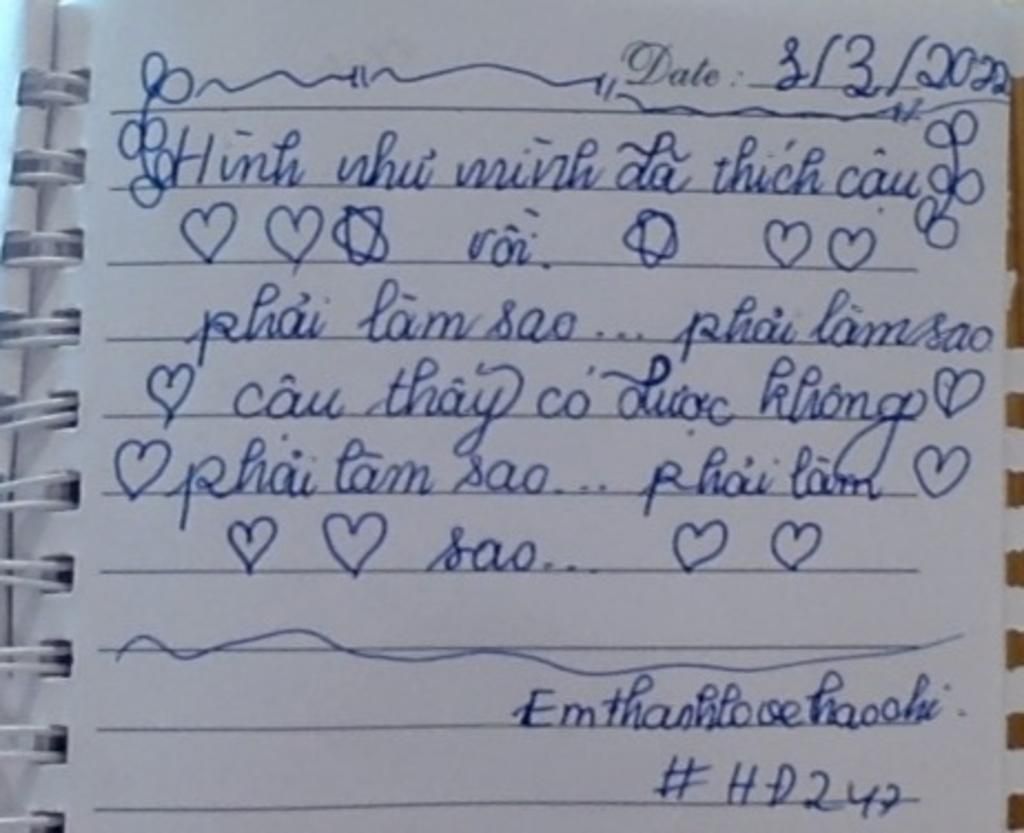 Date: 3/3/2022
Hình như mình đã thích cậu
rồi.
phải làm sao... phải làm sao
cậu thấy có được không
phải làm sao... phải làm
sao...
Emthanhlovehaochi.
#HD247